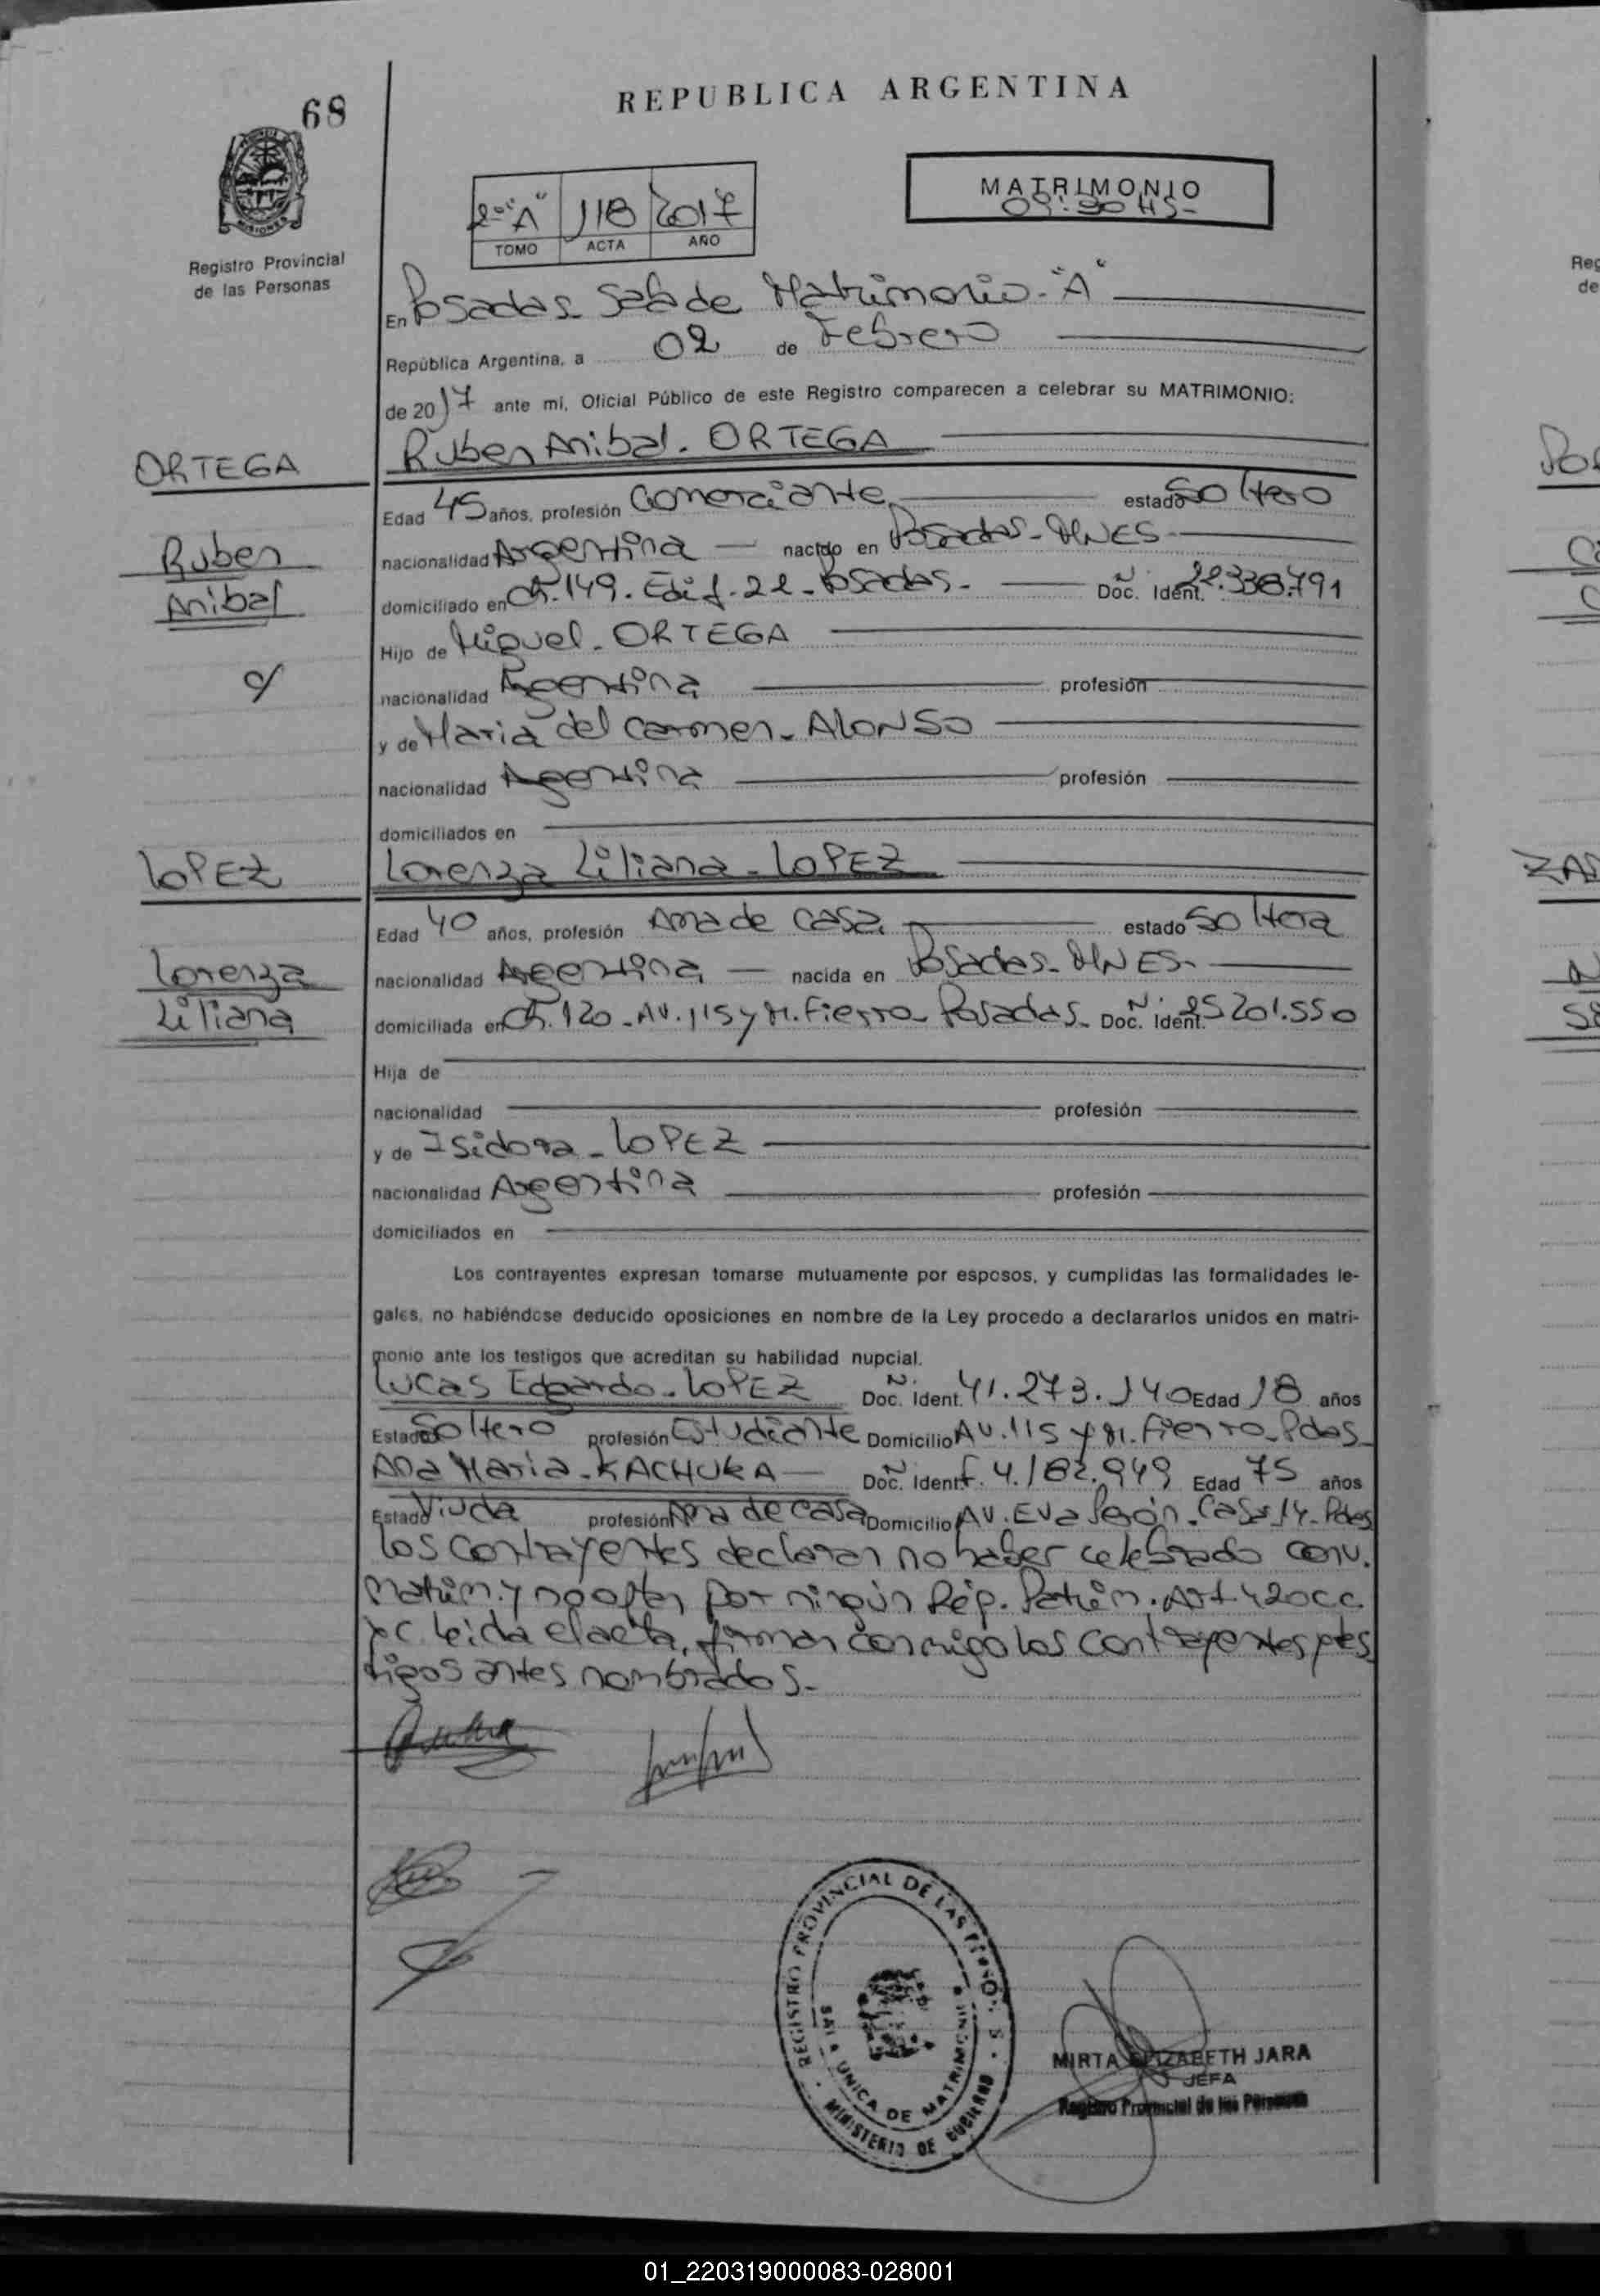 REPUBLICA ARGENTINA
68
MISIONES
Registro Provincial
de las Personas
2º "A" 118 2017
TOMO ACTA AÑO
MATRIMONIO
En Posadas - Sala de Matrimonio - "A"
República Argentina, a 02 de Febrero
de 2017 ante mi, Oficial Público de este Registro comparecen a celebrar su MATRIMONIO:
ORTEGA
Ruben Anibal
c/
Ruben Anibal. ORTEGA
Edad 45 años, profesión Comerciante estado Soltero
nacionalidad Argentina nacido en Posadas - MNES -
domiciliado en Ch. 149. Edif. 22 - Posadas - Nº Doc. Ident. 22.338.791
Hijo de Miguel - ORTEGA
nacionalidad Argentina profesión
y de Maria del Carmen - ALONSO
nacionalidad Argentina profesión
domiciliados en
LOPEZ
Lorenza
Liliana
Lorenza Liliana - LOPEZ
Edad 40 años, profesión Ama de casa estado Soltera
nacionalidad Argentina nacida en Posadas - MNES -
domiciliada en Ch. 120 - AV. 115 y M. Fierro - Posadas - Nº Doc. Ident. 25.201.550
Hija de
nacionalidad profesión
y de Isidora - LOPEZ
nacionalidad Argentina profesión
domiciliados en
Los contrayentes expresan tomarse mutuamente por esposos, y cumplidas las formalidades le-
gales, no habiéndose deducido oposiciones en nombre de la Ley procedo a declararlos unidos en matri-
monio ante los testigos que acreditan su habilidad nupcial.
Lucas Edgardo - LOPEZ Nº Doc. Ident. 41.273.140 Edad 18 años
Estado Soltero profesión Estudiante Domicilio AV. 115 y M. Fierro - Pdas -
Ana Maria - KACHUKA Nº Doc. Ident. F. 4.182.949 Edad 75 años
Estado Viuda profesión Ama de casa Domicilio AV. Eva Perón - Casa 14 - Pdas
Los contrayentes declaran no haber celebrado conv.
matrim. y no optan por ningún Rég. Patrim. Art 420 CC
y C. leida el acta, firman conmigo los contrayentes y tes
tigos antes nombrados -
REGISTRO PROVINCIAL DE LAS PERSONAS
SALA UNICA DE MATRIMONIO
MINISTERIO DE GOBIERNO
MIRTA ELIZABETH JARA
JEFA
Registro Provincial de las Personas
01_220319000083-028001